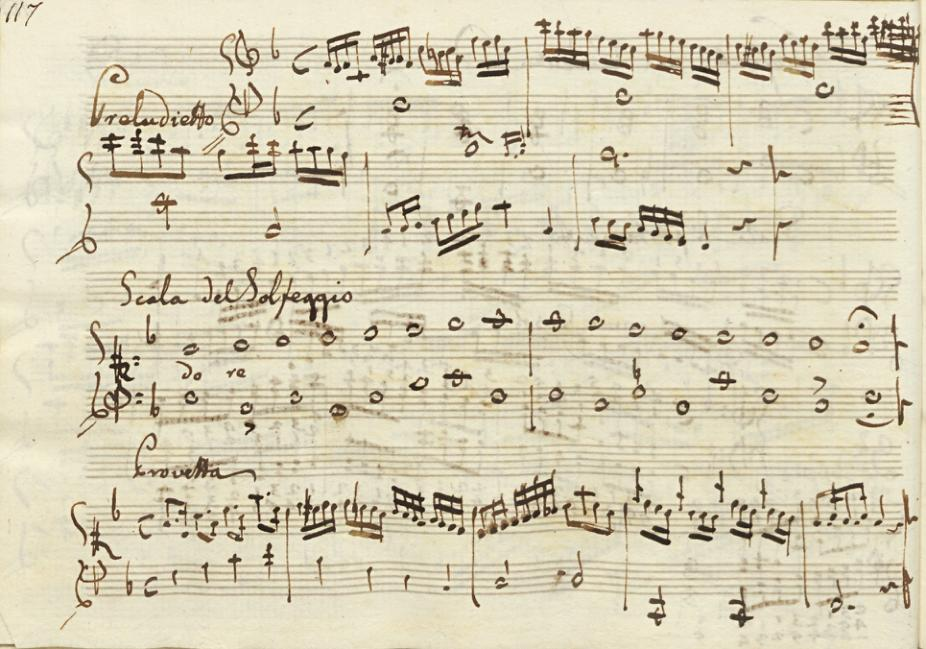 117
Preludietto
Scala del Solfeggio
do re
Provetta